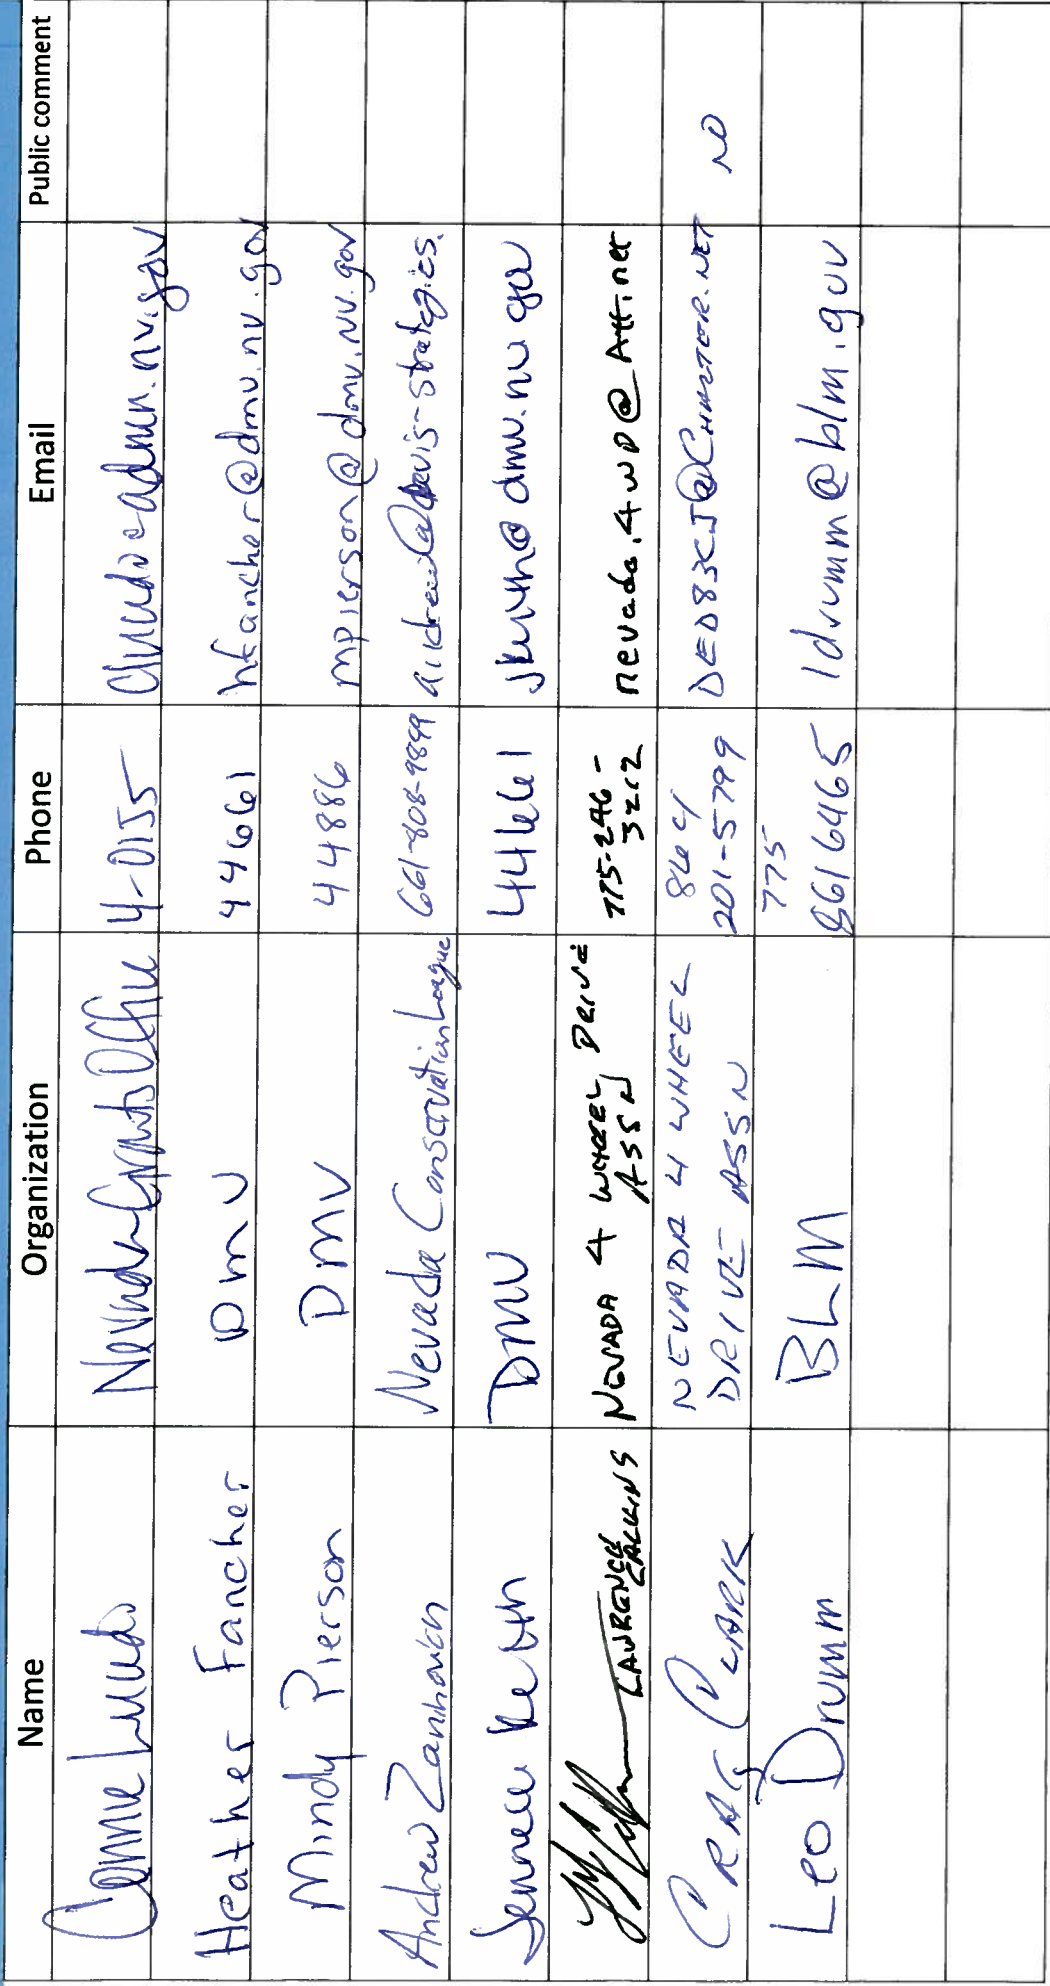 Name Organization Phone Email Public comment
Nevada Grants Office 4-0155
Heather Fancher DMV 44661 hfancher@dmv.nv.gov
Mindy Pierson DMV 44886 mpierson@dmv.nv.gov
Andrew Zaninovich Nevada Conservation League 661-808-9899 andrew@davis-strategies.
DMV 44661 @dmv.nv.gov
LAURENCE CALKINS NEVADA 4 WHEEL DRIVE ASSN 775-246-3212 nevada.4WD@Att.net
CRAIG CLARK NEVADA 4 WHEEL DRIVE ASSN 201-5799 DED83CJ@CHARTER.NET NO
Leo Drumm BLM 775 8616465 ldrumm@blm.gov